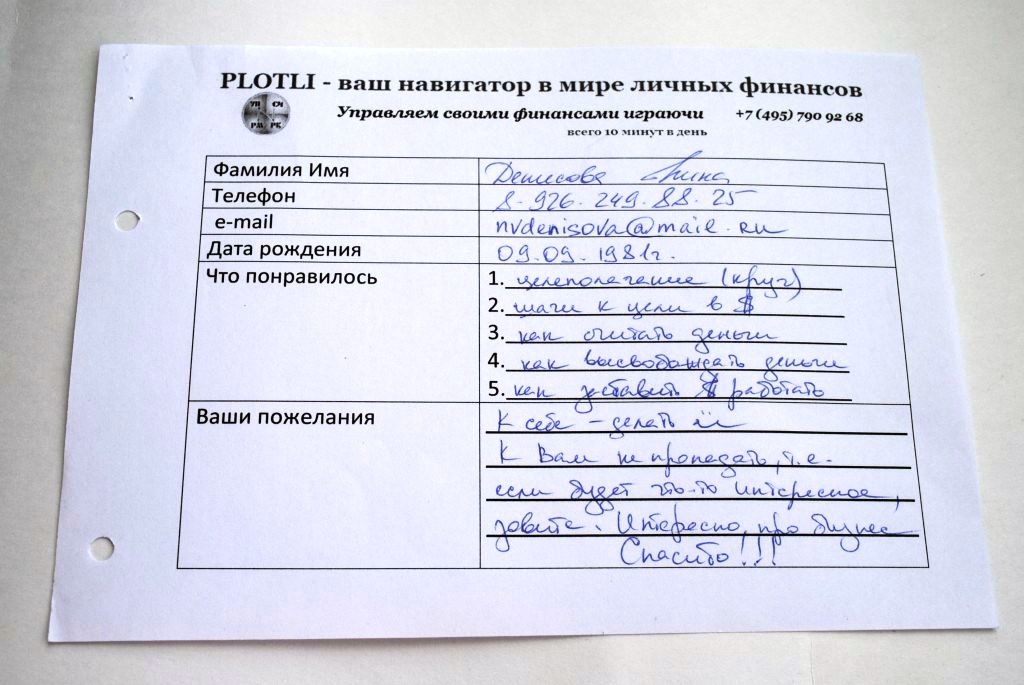 PLOTLI - ваш навигатор в мире личных финансов
Управляем своими финансами играючи +7 (495) 790 92 68
всего 10 минут в день
УП СЧ
РМ РК
Фамилия Имя Денисова Нина
Телефон 8-926-249.88.25
e-mail nvdenisova@mail.ru
Дата рождения 09.09.1981г.
Что понравилось 1. целеполагание (круг)
2. шаги к цели в $
3. как считать деньги
4. как высвобождать деньги
5. как заставить $ работать
Ваши пожелания К себе – делать
К Вам не пропадать, т.е.
если будет что-то интересное,
зовите. Интересно про бизнес
Спасибо!!!